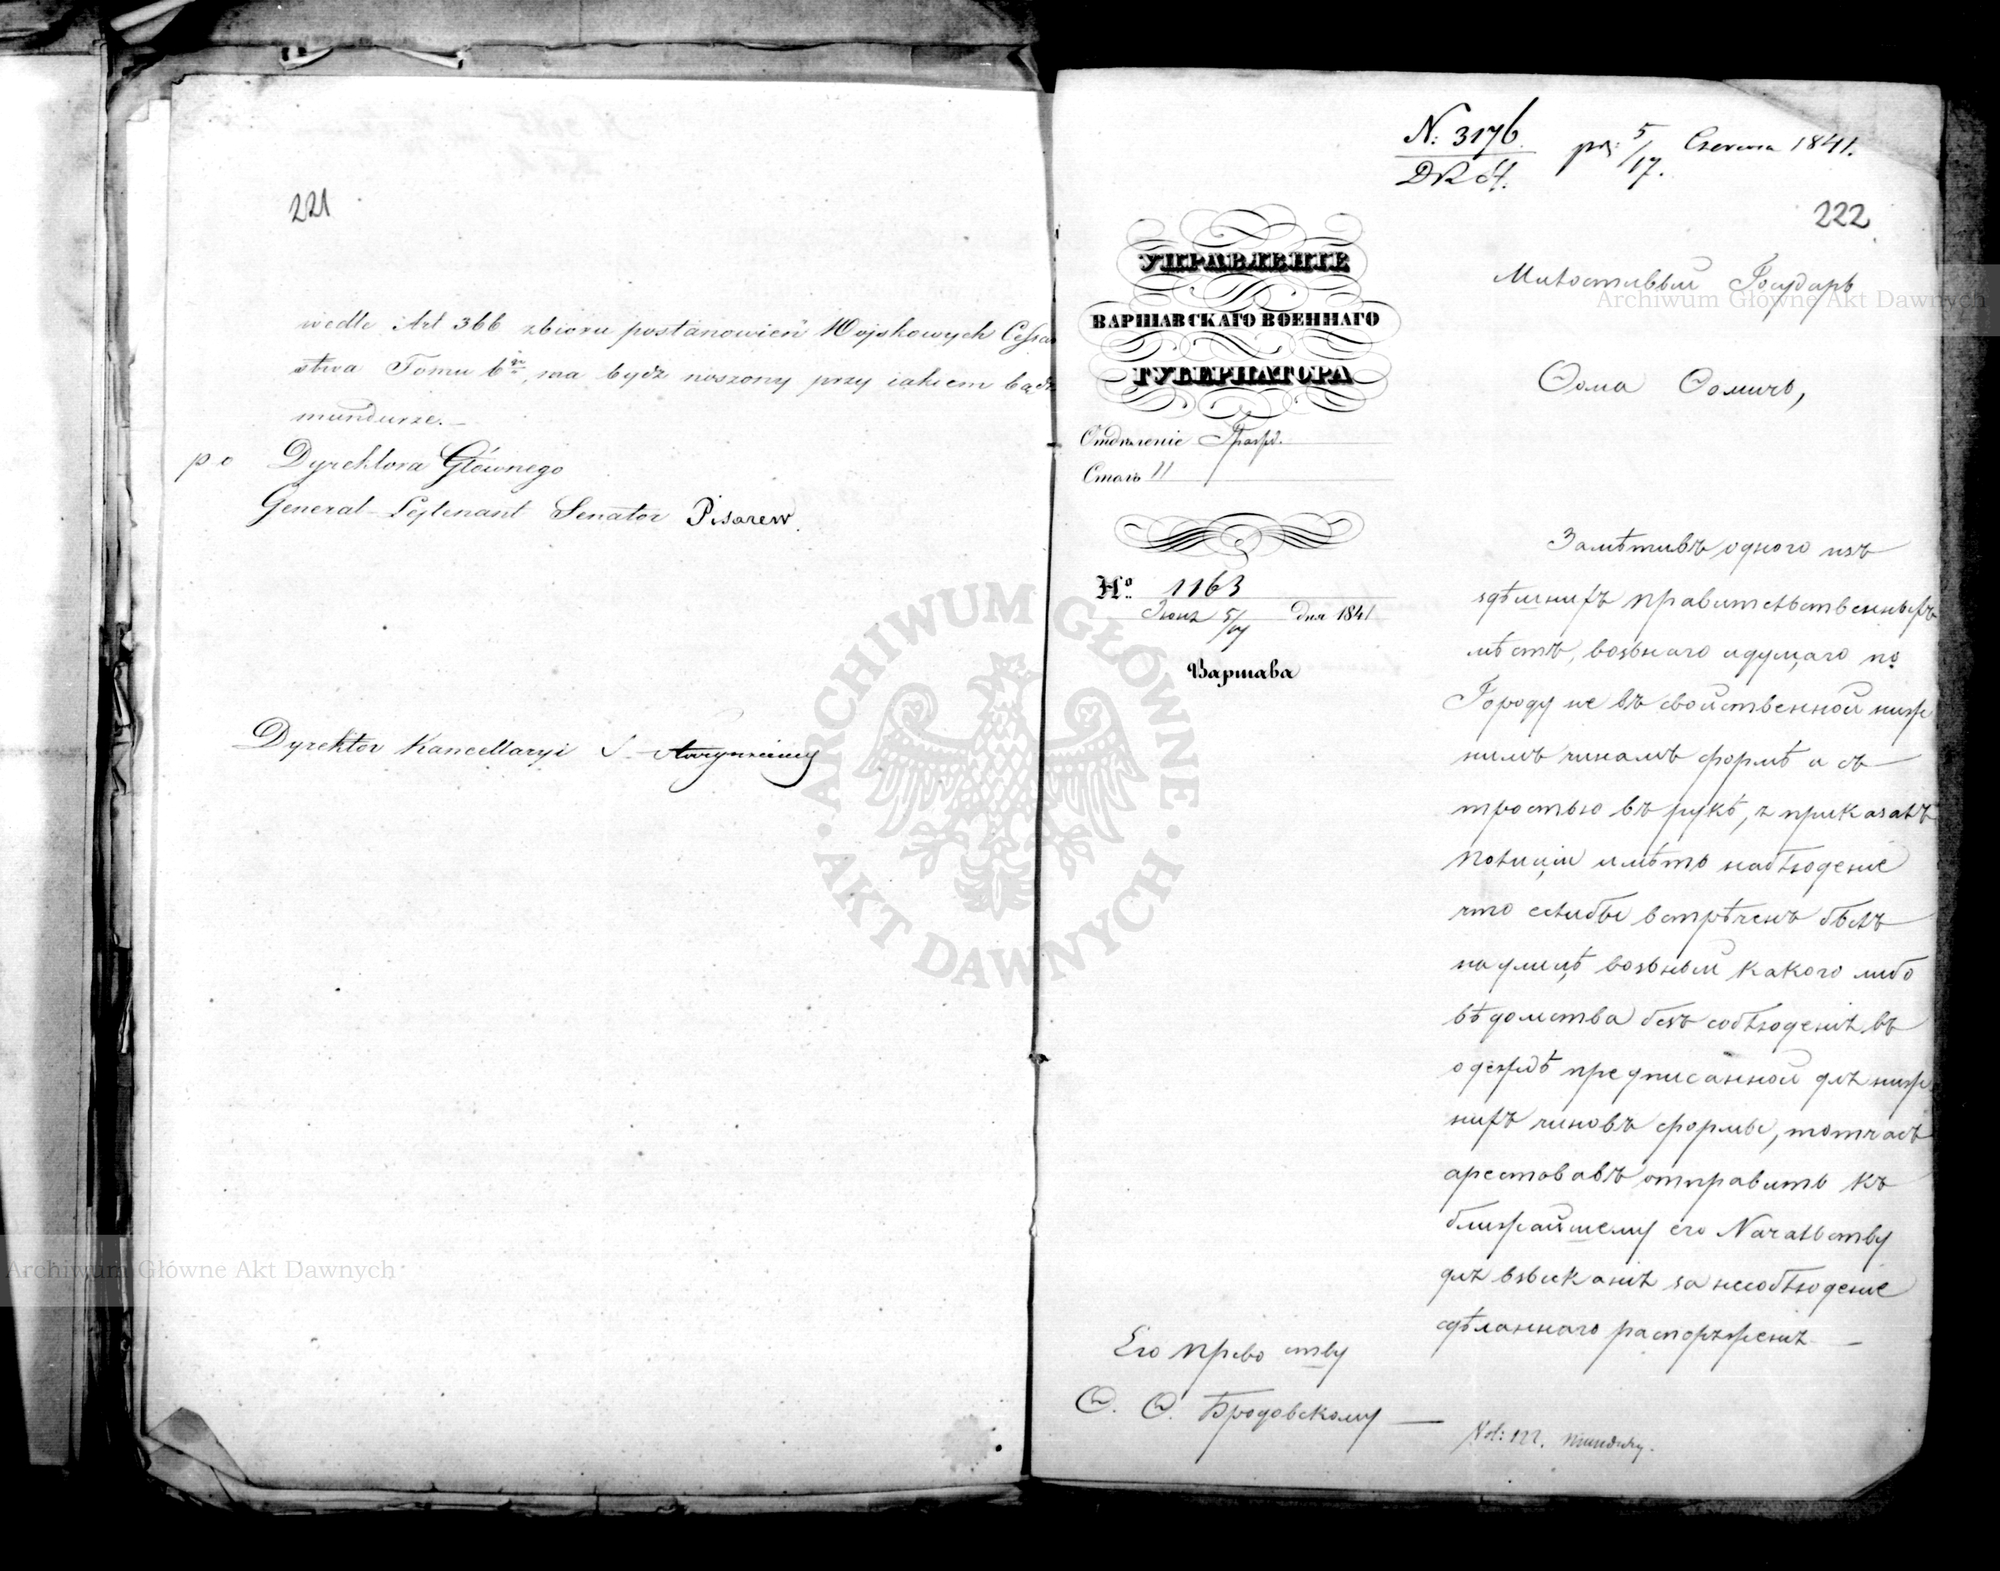 221
wedle Art 366 zbioru postanowień Wojskowych Cessar
stwa Tomu 6go, ma bydź noszony przy iakiem bądź
mundurze.
p o Dyrektora Głównego
Generał-Lejtenant Senator Pisarew.
Dyrektor Kancellaryi
N: 3176. prz: 5/17. Czerwca 1841.
222
УПРАВЛЕНІЕ
ВАРШАВСКАГО ВОЕННАГО
ГУБЕРНАТОРА
Отдѣленіе Гражд.
Столъ II
No. 1163
Іюня 5/17 дня 1841
Варшава
Милостивый Государь
Ѳома Ѳомичъ,
Замѣтивъ одного изъ
здѣшнихъ правительственныхъ
мѣстъ, возьнаго идущаго по
Городу не въ свойственной ниж
нимъ чинамъ формѣ и съ
тростью въ рукѣ, я приказалъ
полиціи имѣть наблюденіе
что если бы встрѣченъ былъ
на улицѣ возьный какого либо
вѣдомства безъ соблюденія въ
одеждѣ предписанной для ниж
нихъ чиновъ формы, тотчасъ
арестовавъ отправить къ
ближайшему его Начальству
для взысканія за несоблюденіе
сдѣланнаго распоряженія
Его Прево ству
Ѳ. Ѳ. Бродовскому
mundury.
Archiwum Główne Akt Dawnych
Archiwum Główne Akt Dawnych
ARCHIWUM GŁÓWNE
AKT DAWNYCH